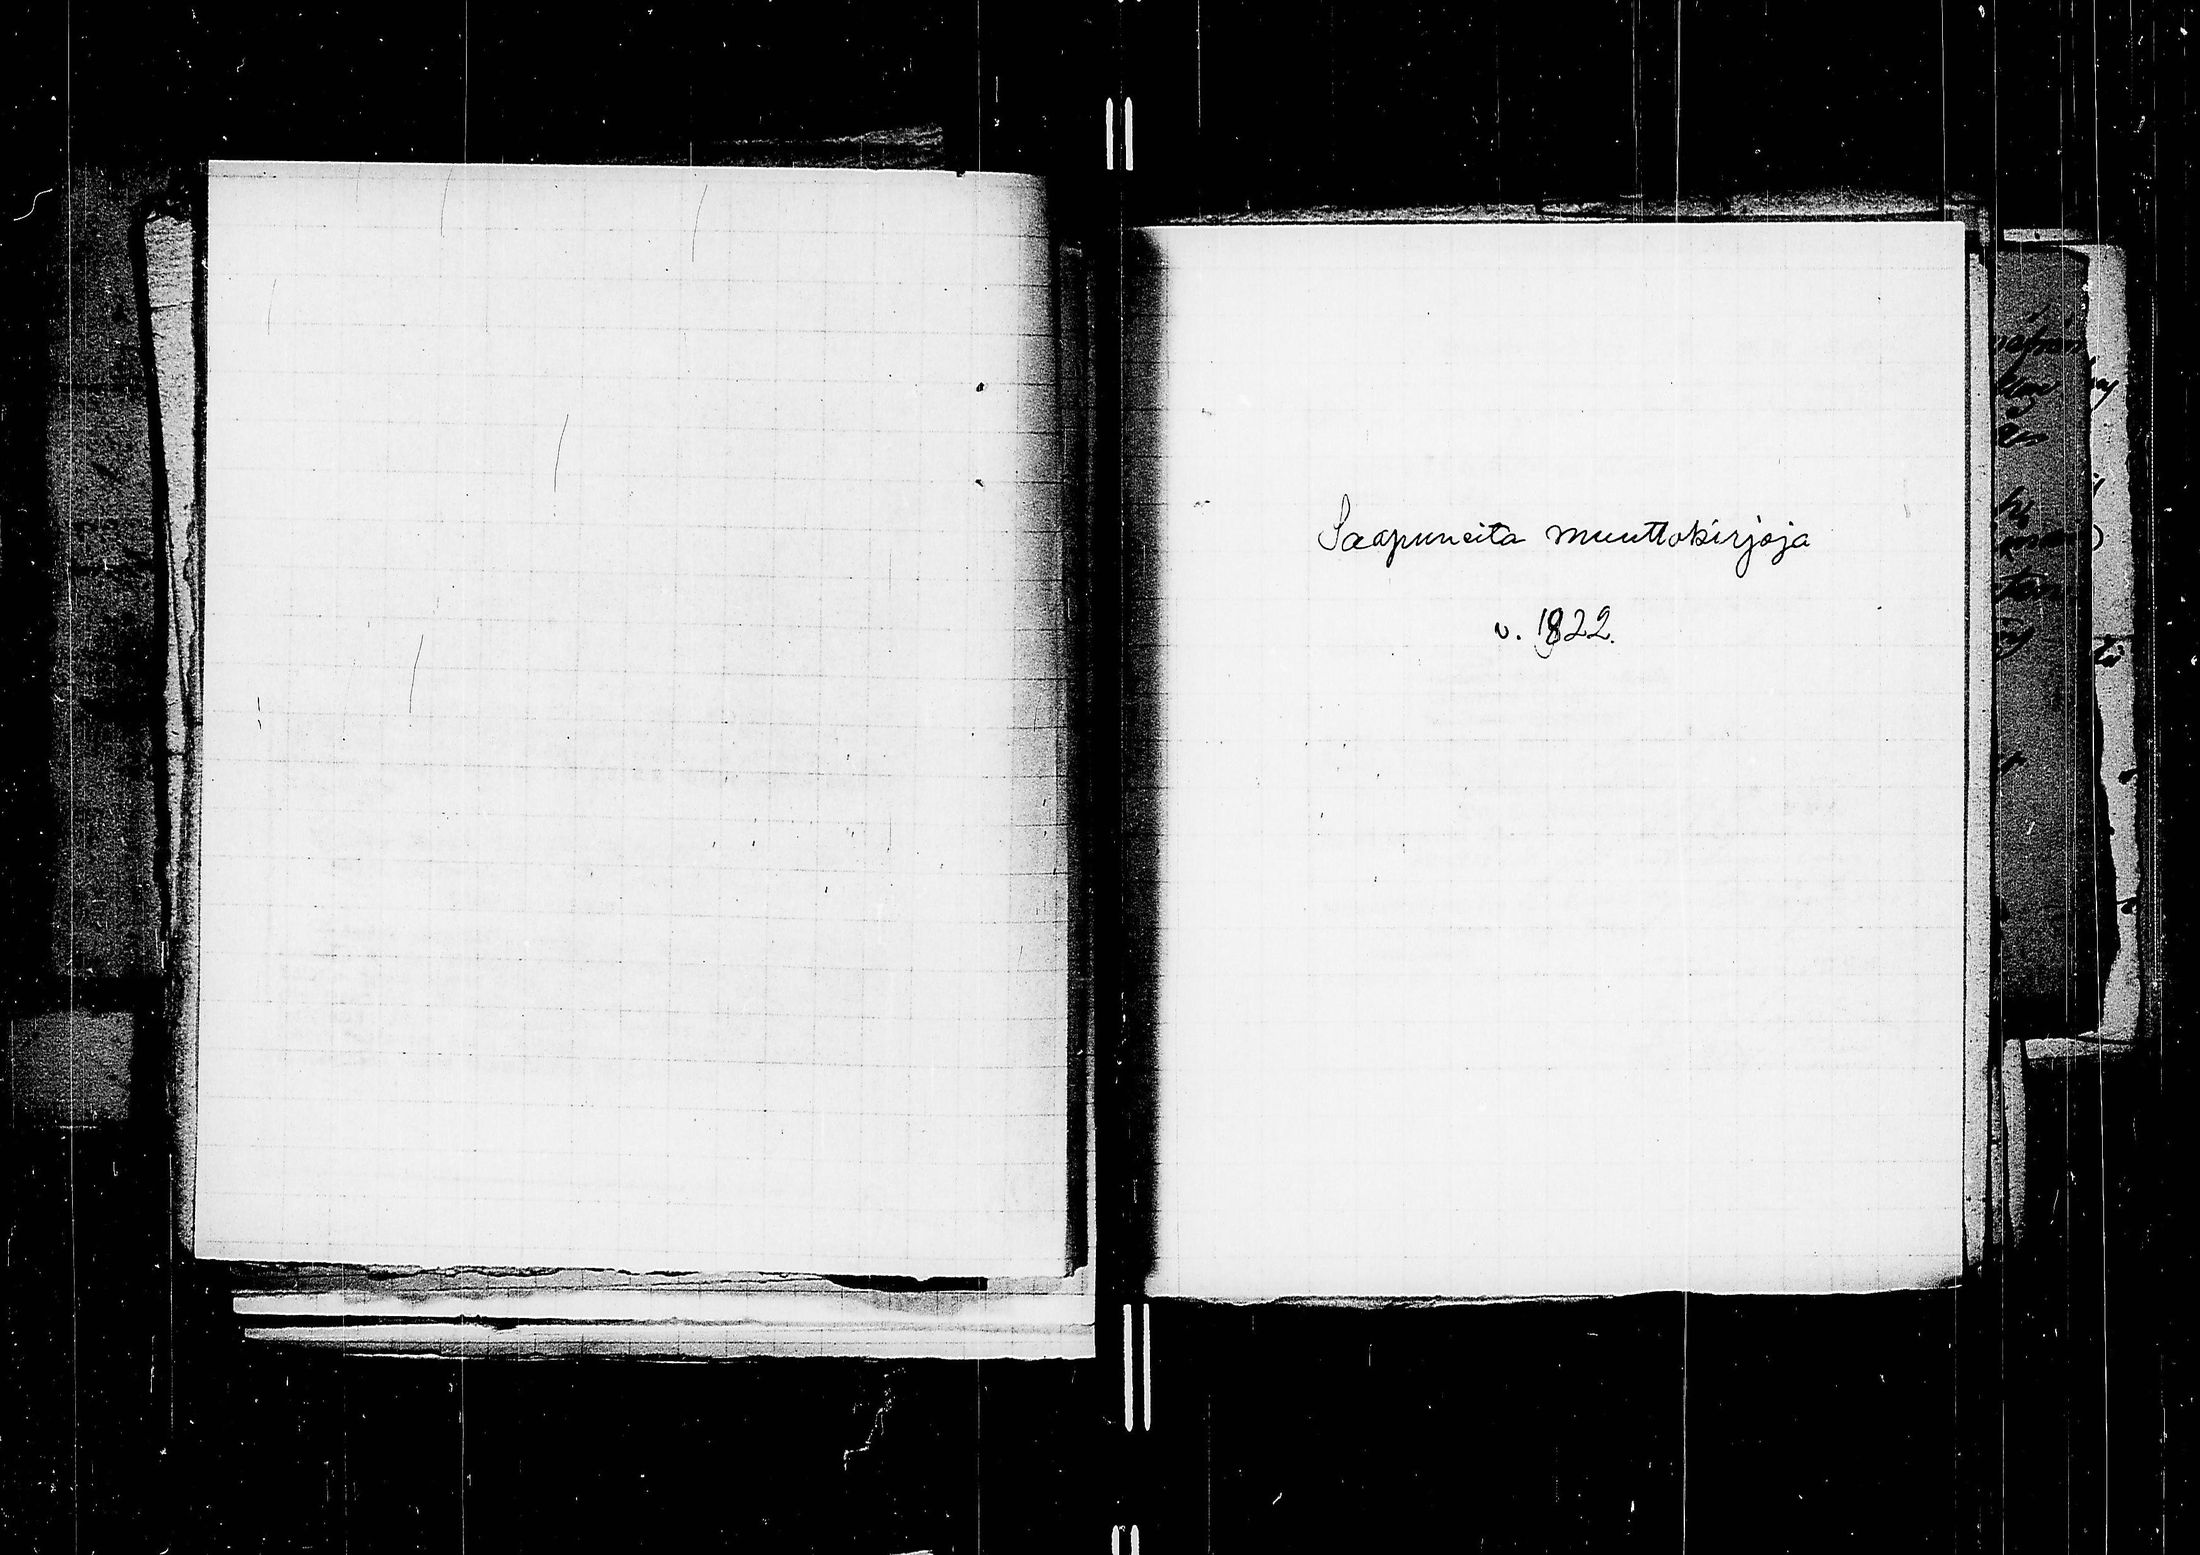 Saapuneita muuttokirjoja
v. 1822.